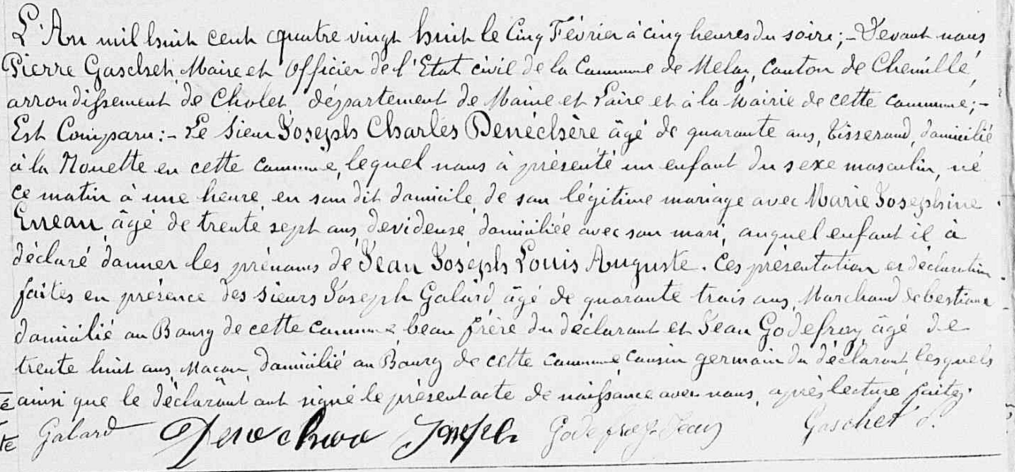 L'An mil huit cent quatre vingt huit le Cinq Février à cinq heures du soire; - Devant nous
Pierre Gaschet, Maire et Officier de l'Etat civil de la Commune de Melay, canton de Chemillé,
arrondissement de Cholet, département de Maine et Loire et à la Mairie de cette commune; -
Est Comparu: - Le Sieur Joseph Charles Denéchère âgé de quarante ans, tisserand, domicilié
à la Nouette en cette commune, lequel nous à présenté un enfant du sexe masculin, né
ce matin à une heure, en son dit domicile, de son légitime mariage avec Marie Josephine
Erreau, âgé de trente sept ans, devideuse, domiciliée avec son mari, auquel enfant il à
déclaré donner les prénoms de Jean Joseph Louis Auguste. Ces présentation et déclaration
faites en présence des sieurs Joseph Galard âgé de quarante trois ans, Marchand de bestiaux
domicilié au Bourg de cette commune beau frère du déclarant et Jean Godefroy âgé de
trente huit ans Maçon, domicilié au Bourg de cette commune cousin germain du déclarant, lesquels
ainsi que le déclarant ont signé le présent acte de naissance avec nous, après lecture faite.
Galard Joseph Godefroy Jean Gaschet P.